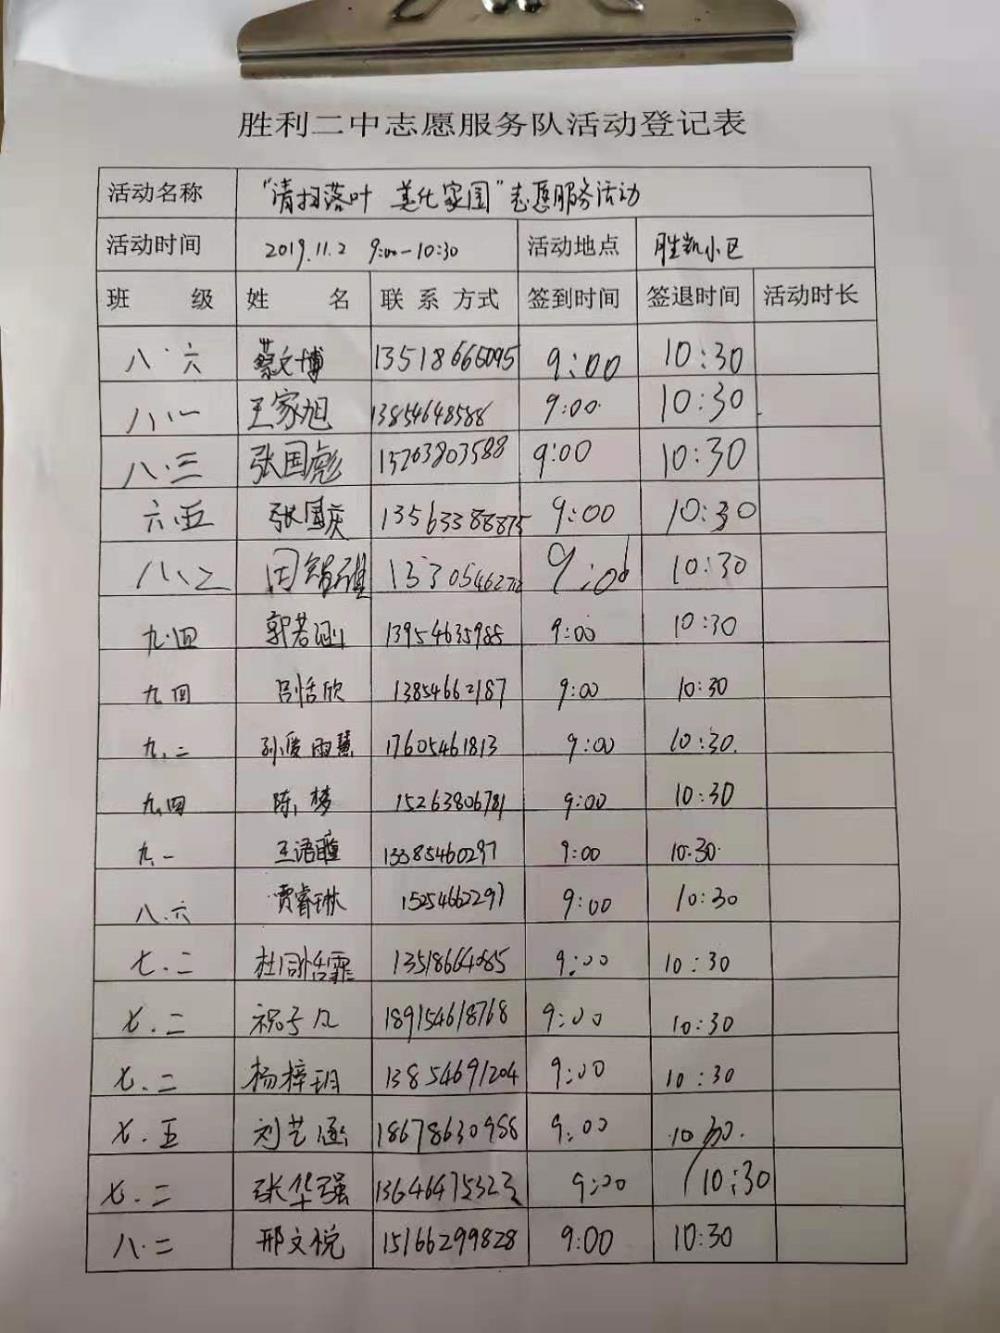 胜利二中志愿服务队活动登记表
活动名称 "清扫落叶 美化家园"志愿服务活动
活动时间 2019.11.2 9:00-10:30 活动地点 胜凯小区
班 级 姓 名 联 系 方式 签到时间 签退时间 活动时长
八·六 蔡文博 13518666095 9:00 10:30
八·一 王家旭 13854648588 9:00 10:30
八·三 张国彪 15263803588 9:00 10:30
六·五 张国庆 13563388875 9:00 10:30
八、二 9:00 10:30
九·四 郭若涵 13954635988 9:00 10:30
九 四 吕恬欣 13854662187 9:00 10:30
九、二 孙俊雨慧 17605461813 9:00 10:30.
九.四 陈梦 15263806781 9:00 10:30
九.一 王语瞳 13385460297 9:00 10:30
八.六 贾睿琳 15254662297 9:00 10:30
七.二 杜同恬霏 13518664085 9:00 10:30
七.二 祝子凡 189154618768 9:00 10:30
七.二 杨梓玥 13854691204 9:00 10:30
七.五 刘艺涵 18678630988 9:00 10:30.
七.二 张华强 13646475323 9:00 10:30
八.二 邢文悦 15166299828 9:00 10:30